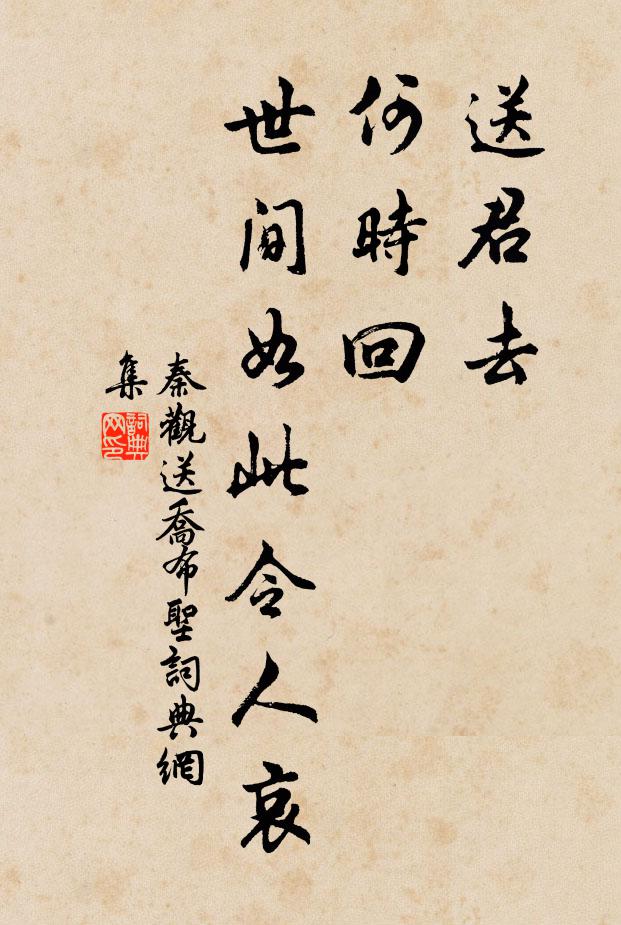 送君去
何時回
世间如此令人哀
秦觀送喬布聖詞典網
集
詞典
网印